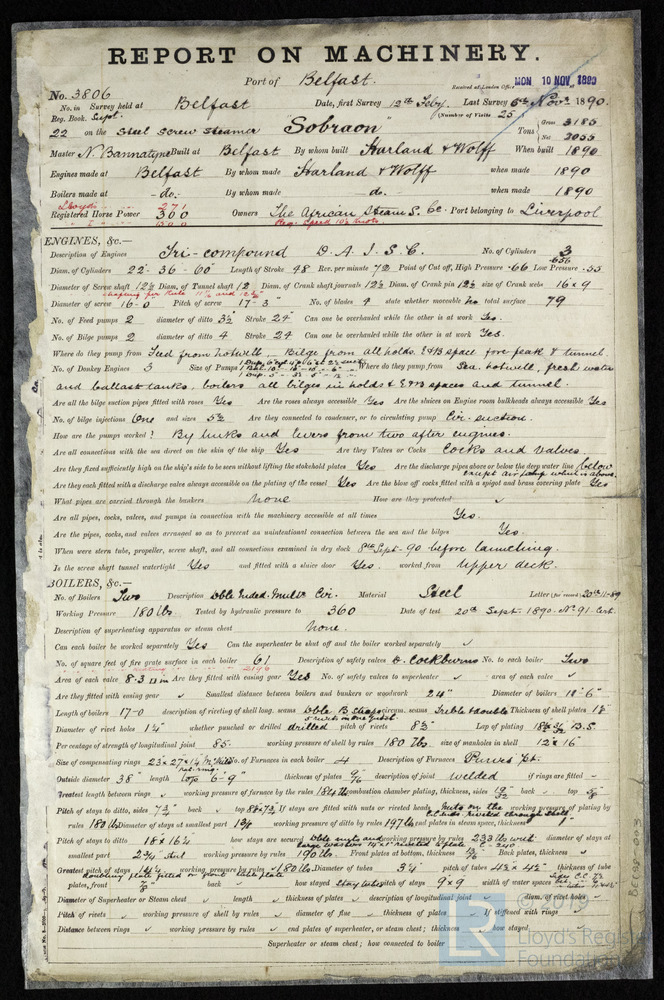 REPORT ON MACHINERY.
Port of Belfast.
Received at London Office MON. 10 NOV. 1890
No. 3806
No. in Survey held at Belfast Date, first Survey 12th Feby. Last Survey 6th Novr 1890.
Reg. Book. Sept. (Number of Visits 25)
22 on the Steel screw steamer "Sobraon" Tons Gross 3185 Net 2055
Master N. Bannatyne Built at Belfast By whom built Harland & Wolff When built 1890
Engines made at Belfast By whom made Harland & Wolff when made 1890
Boilers made at - do. - By whom made do. when made 1890
Lloyds 271
Registered Horse Power 300 Owners The African Steam S. Co. Port belonging to Liverpool
ENGINES, &c.—
Description of Engines Tri-compound D. A. I. S. C. No. of Cylinders 3
Diam. of Cylinders 22 - 36 - 60" Length of Stroke 48 Rev. per minute 72 Point of Cut off, High Pressure .66 Low Pressure .55
Diameter of Screw shaft 12½ Diam. of Tunnel shaft 12 Diam. of Crank shaft journals 12½ Diam. of Crank pin 12½ size of Crank webs 16 × 9
Diameter of screw 16-0 Pitch of screw 17-3" No. of blades 4 state whether moveable no total surface 79
No. of Feed pumps 2 diameter of ditto 3½ Stroke 24" Can one be overhauled while the other is at work Yes.
No. of Bilge pumps 2 diameter of ditto 4 Stroke 24 Can one be overhauled while the other is at work Yes.
Where do they pump from Feed from hotwell, Bilge from all holds. E&B space fore peak & tunnel.
No. of Donkey Engines 3 Size of Pumps Where do they pump from Sea, hotwell, fresh water
and ballast tanks, boilers all bilges in holds & E&B spaces and tunnel.
Are all the bilge suction pipes fitted with roses Yes Are the roses always accessible Yes Are the sluices on Engine room bulkheads always accessible Yes
No. of bilge injections One and sizes 5½ Are they connected to condenser, or to circulating pump Cir. suction.
How are the pumps worked? By links and levers from two after engines.
Are all connections with the sea direct on the skin of the ship Yes Are they Valves or Cocks Cocks and valves.
Are they fixed sufficiently high on the ship's side to be seen without lifting the stokehold plates Yes Are the discharge pipes above or below the deep water line below
except air pump which is above.
Are they each fitted with a discharge valve always accessible on the plating of the vessel Yes Are the blow off cocks fitted with a spigot and brass covering plate Yes
What pipes are carried through the bunkers none How are they protected
Are all pipes, cocks, valves, and pumps in connection with the machinery accessible at all times Yes.
Are the pipes, cocks, and valves arranged so as to prevent an unintentional connection between the sea and the bilges Yes.
When were stern tube, propeller, screw shaft, and all connections examined in dry dock 8th Sept. 90 before launching.
Is the screw shaft tunnel watertight Yes and fitted with a sluice door Yes worked from Upper deck.
BOILERS, &c.—
No. of Boilers Two Description Dble Ended. Multr Cir. Material Steel Letter (for record) 20th 11-89
Working Pressure 180 lbs. Tested by hydraulic pressure to 360 Date of test 20th Sept. 1890. No 91. Cert.
Description of superheating apparatus or steam chest None.
Can each boiler be worked separately Yes Can the superheater be shut off and the boiler worked separately
No. of square feet of fire grate surface in each boiler 61 Description of safety valves D. Cockburns No. to each boiler Two
Area of each valve 8.3 Are they fitted with easing gear Yes No. of safety valves to superheater area of each valve
Are they fitted with easing gear Smallest distance between boilers and bunkers or woodwork 24" Diameter of boilers
Length of boilers 17-0 description of riveting of shell long. seams Dble B straps circum. seams Treble & double Thickness of shell plates
Diameter of rivet holes 1¼" whether punched or drilled drilled pitch of rivets Lap of plating
Per centage of strength of longitudinal joint 85. working pressure of shell by rules 180 lbs. size of manholes in shell 12 × 16"
Size of compensating rings No. of Furnaces in each boiler 4 Description of Furnaces Purves Pt.
Outside diameter 38" length 6-9" thickness of plates 9/16 description of joint welded if rings are fitted
Greatest length between rings working pressure of furnace by the rules 184 lbs combustion chamber plating, thickness, sides back top
Pitch of stays to ditto, sides back top If stays are fitted with nuts or riveted heads Nuts on the working pressure of plating by
rules 180 lbs Diameter of stays at smallest part working pressure of ditto by rules 197 lbs end plates in steam space, thickness 1"
Pitch of stays to ditto 18 × 16¼ how stays are secured Dble nuts and working pressure by rules diameter of stays at
smallest part 2¾ steel working pressure by rules 190 lbs. Front plates at bottom, thickness Back plates, thickness
Greatest pitch of stays working pressure by rules 180 lbs. Diameter of tubes 3¼ pitch of tubes 4½ × 4½" thickness of tube
plates, front back how stayed Stay tubes pitch of stays 9 × 9 width of water spaces
Diameter of Superheater or Steam chest length thickness of plates description of longitudinal joint diam. of rivet holes
Pitch of rivets working pressure of shell by rules diameter of flue thickness of plates If stiffened with rings
Distance between rings working pressure by rules end plates of superheater, or steam chest; thickness how stayed
Superheater or steam chest; how connected to boiler
© 2019
LR
Lloyd's Register
Foundation